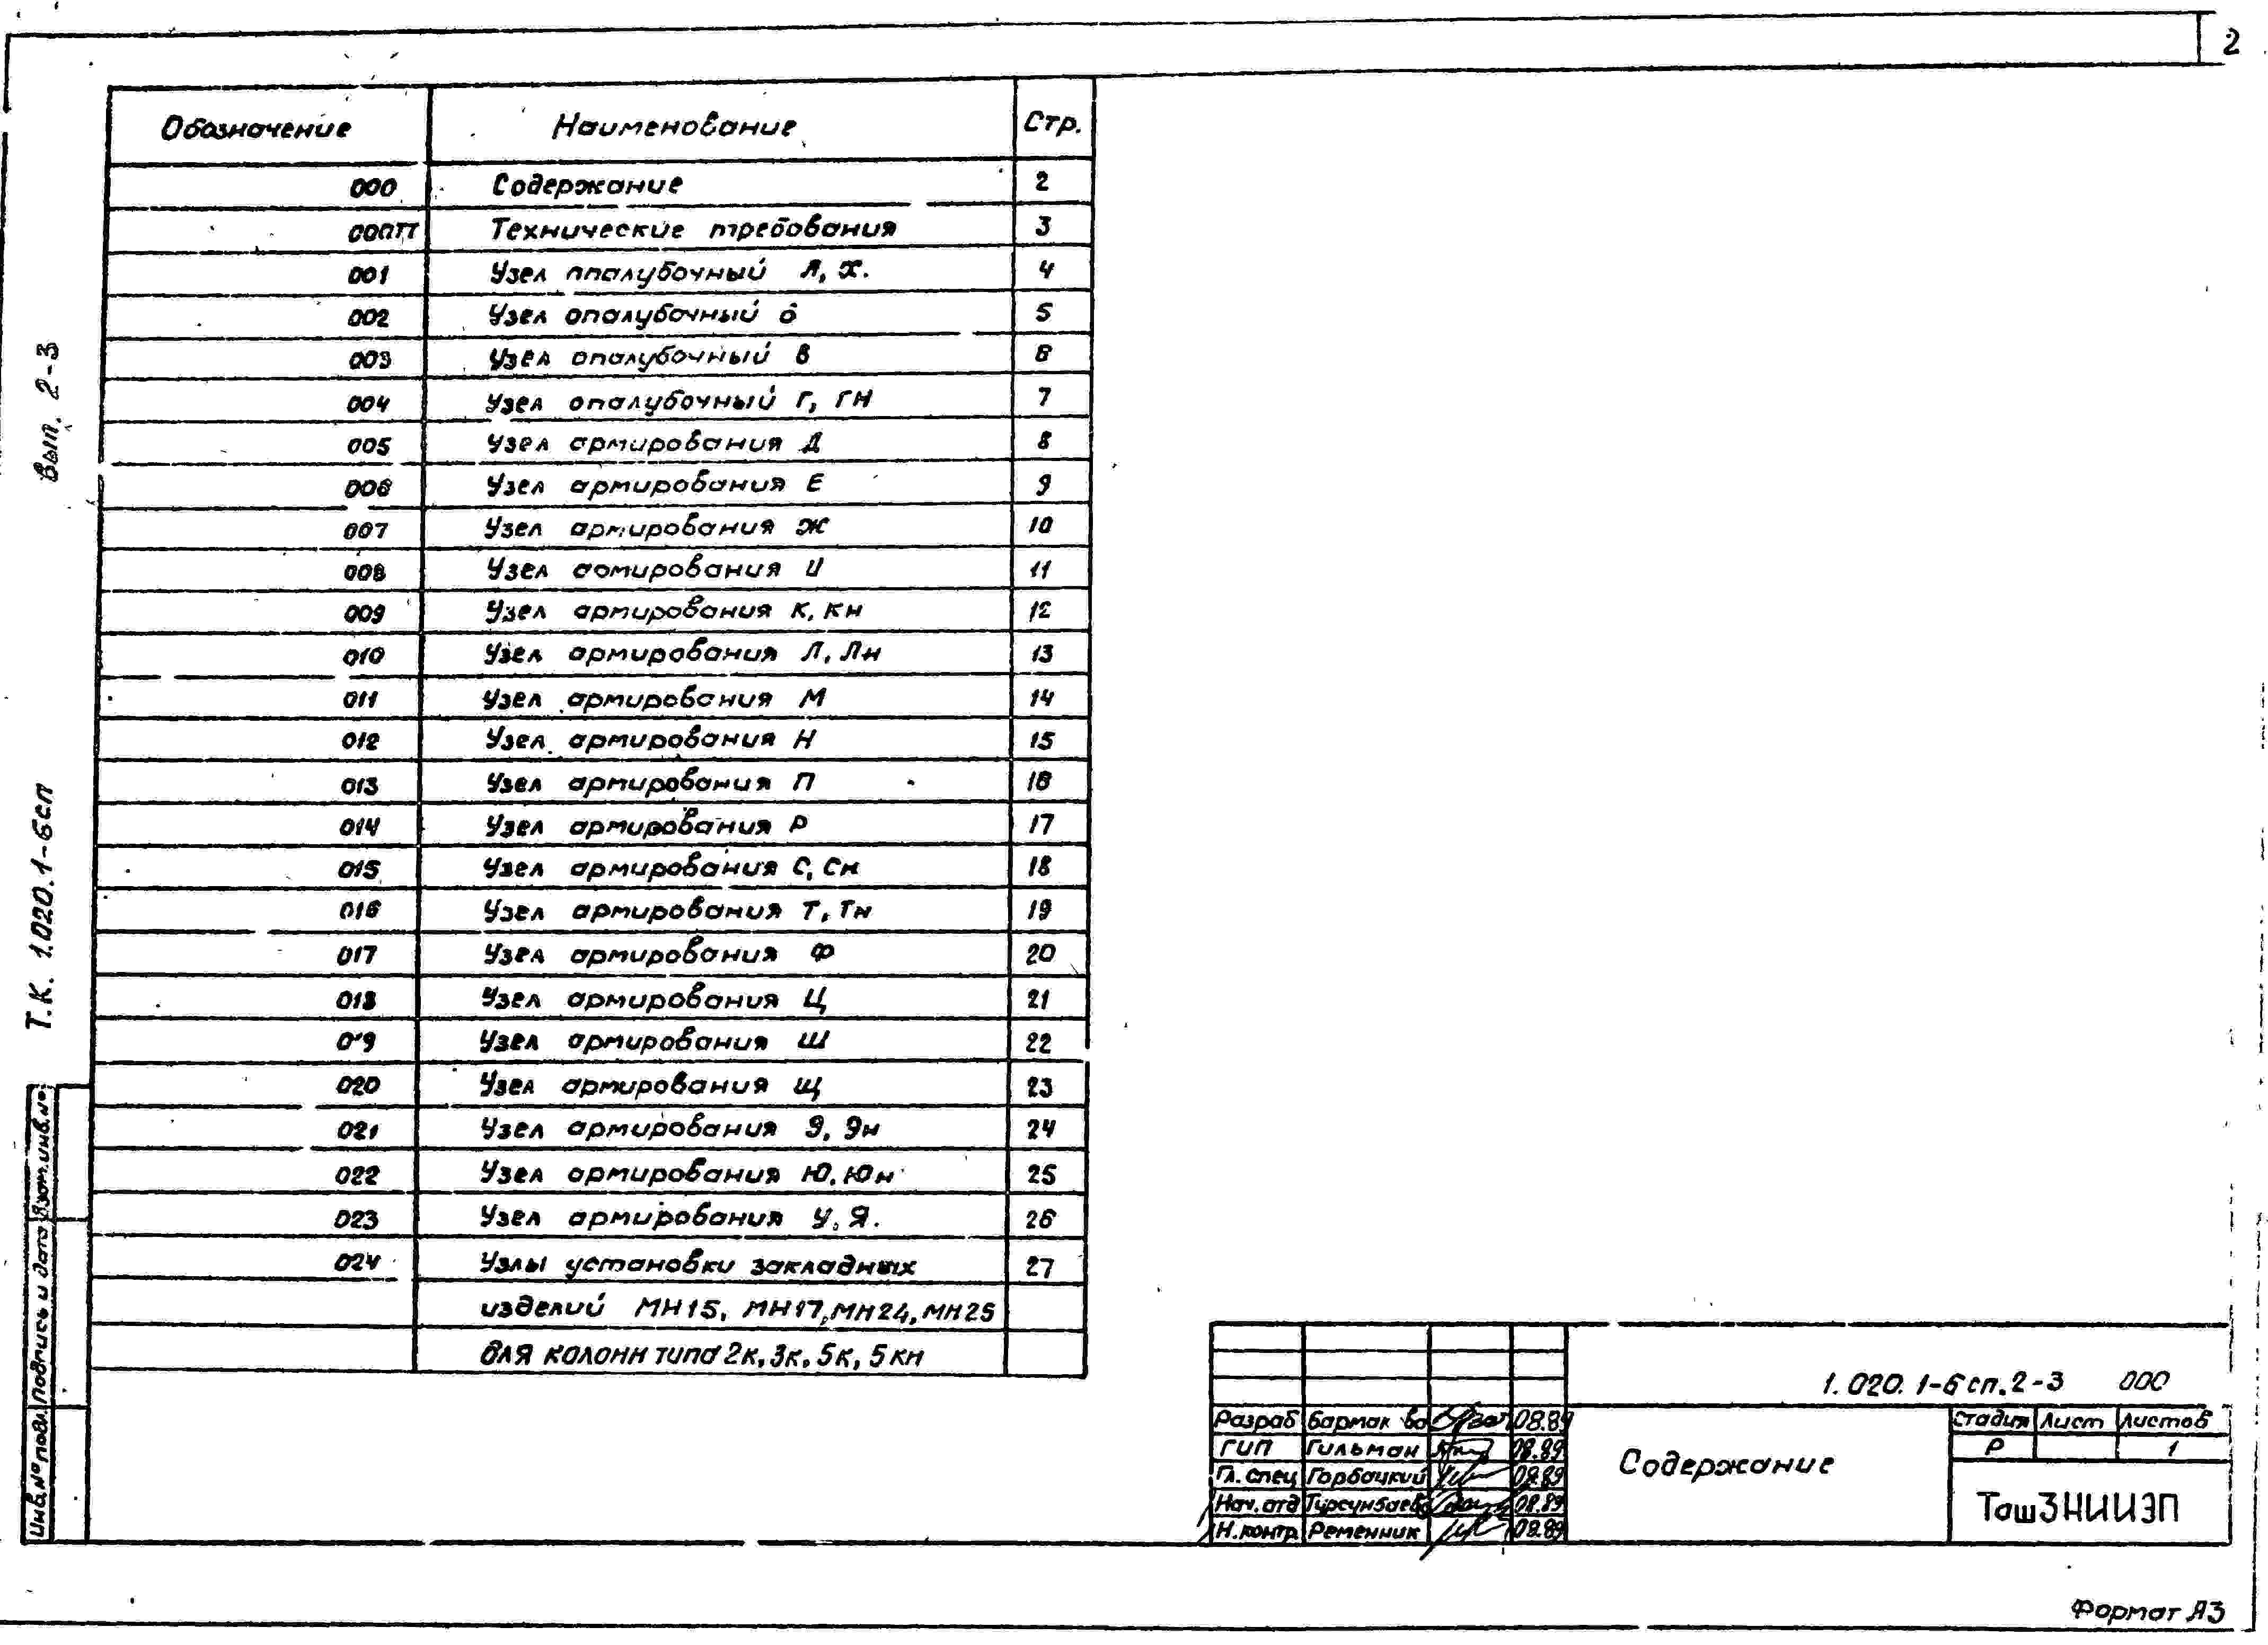 2
Обозначение Наименование Стр.
000 Содержание 2
000ТТ Технические требования 3
001 Узел опалубочный А, Х. 4
002 Узел опалубочный б 5
003 Узел опалубочный В 6
004 Узел опалубочный Г, ГН 7
005 Узел армирования Д 8
006 Узел армирования Е 9
007 Узел армирования Ж 10
008 Узел армирования И 11
009 Узел армирования К, КН 12
010 Узел армирования Л, Лн 13
011 Узел армирования М 14
012 Узел армирования Н 15
013 Узел армирования П 16
014 Узел армирования Р 17
015 Узел армирования С, Сн 18
016 Узел армирования Т, Тн 19
017 Узел армирования Ф 20
018 Узел армирования Ц 21
019 Узел армирования Ш 22
020 Узел армирования Щ 23
021 Узел армирования Э, Эн 24
022 Узел армирования Ю, Юн 25
023 Узел армирования У, Я. 26
024 Узлы установки закладных 27
изделий МН15, МН17, МН24, МН25
для колонн типа 2к, 3к, 5к, 5кн
Т.К. 1.020.1-6сп Вып. 2-3
Инв.№ подл. Подпись и дата Взам.инв.№
1.020.1-6сп.2-3 000
Разраб 08.89
ГИП Гильман 08.89
Гл. спец Горбацкий 08.89
Нач. отд Турсунбаев 08.89
Н. контр. Ременник 08.89
Содержание
Стадия Лист Листов
Р 1
ТашЗНИИЭП
Формат А3